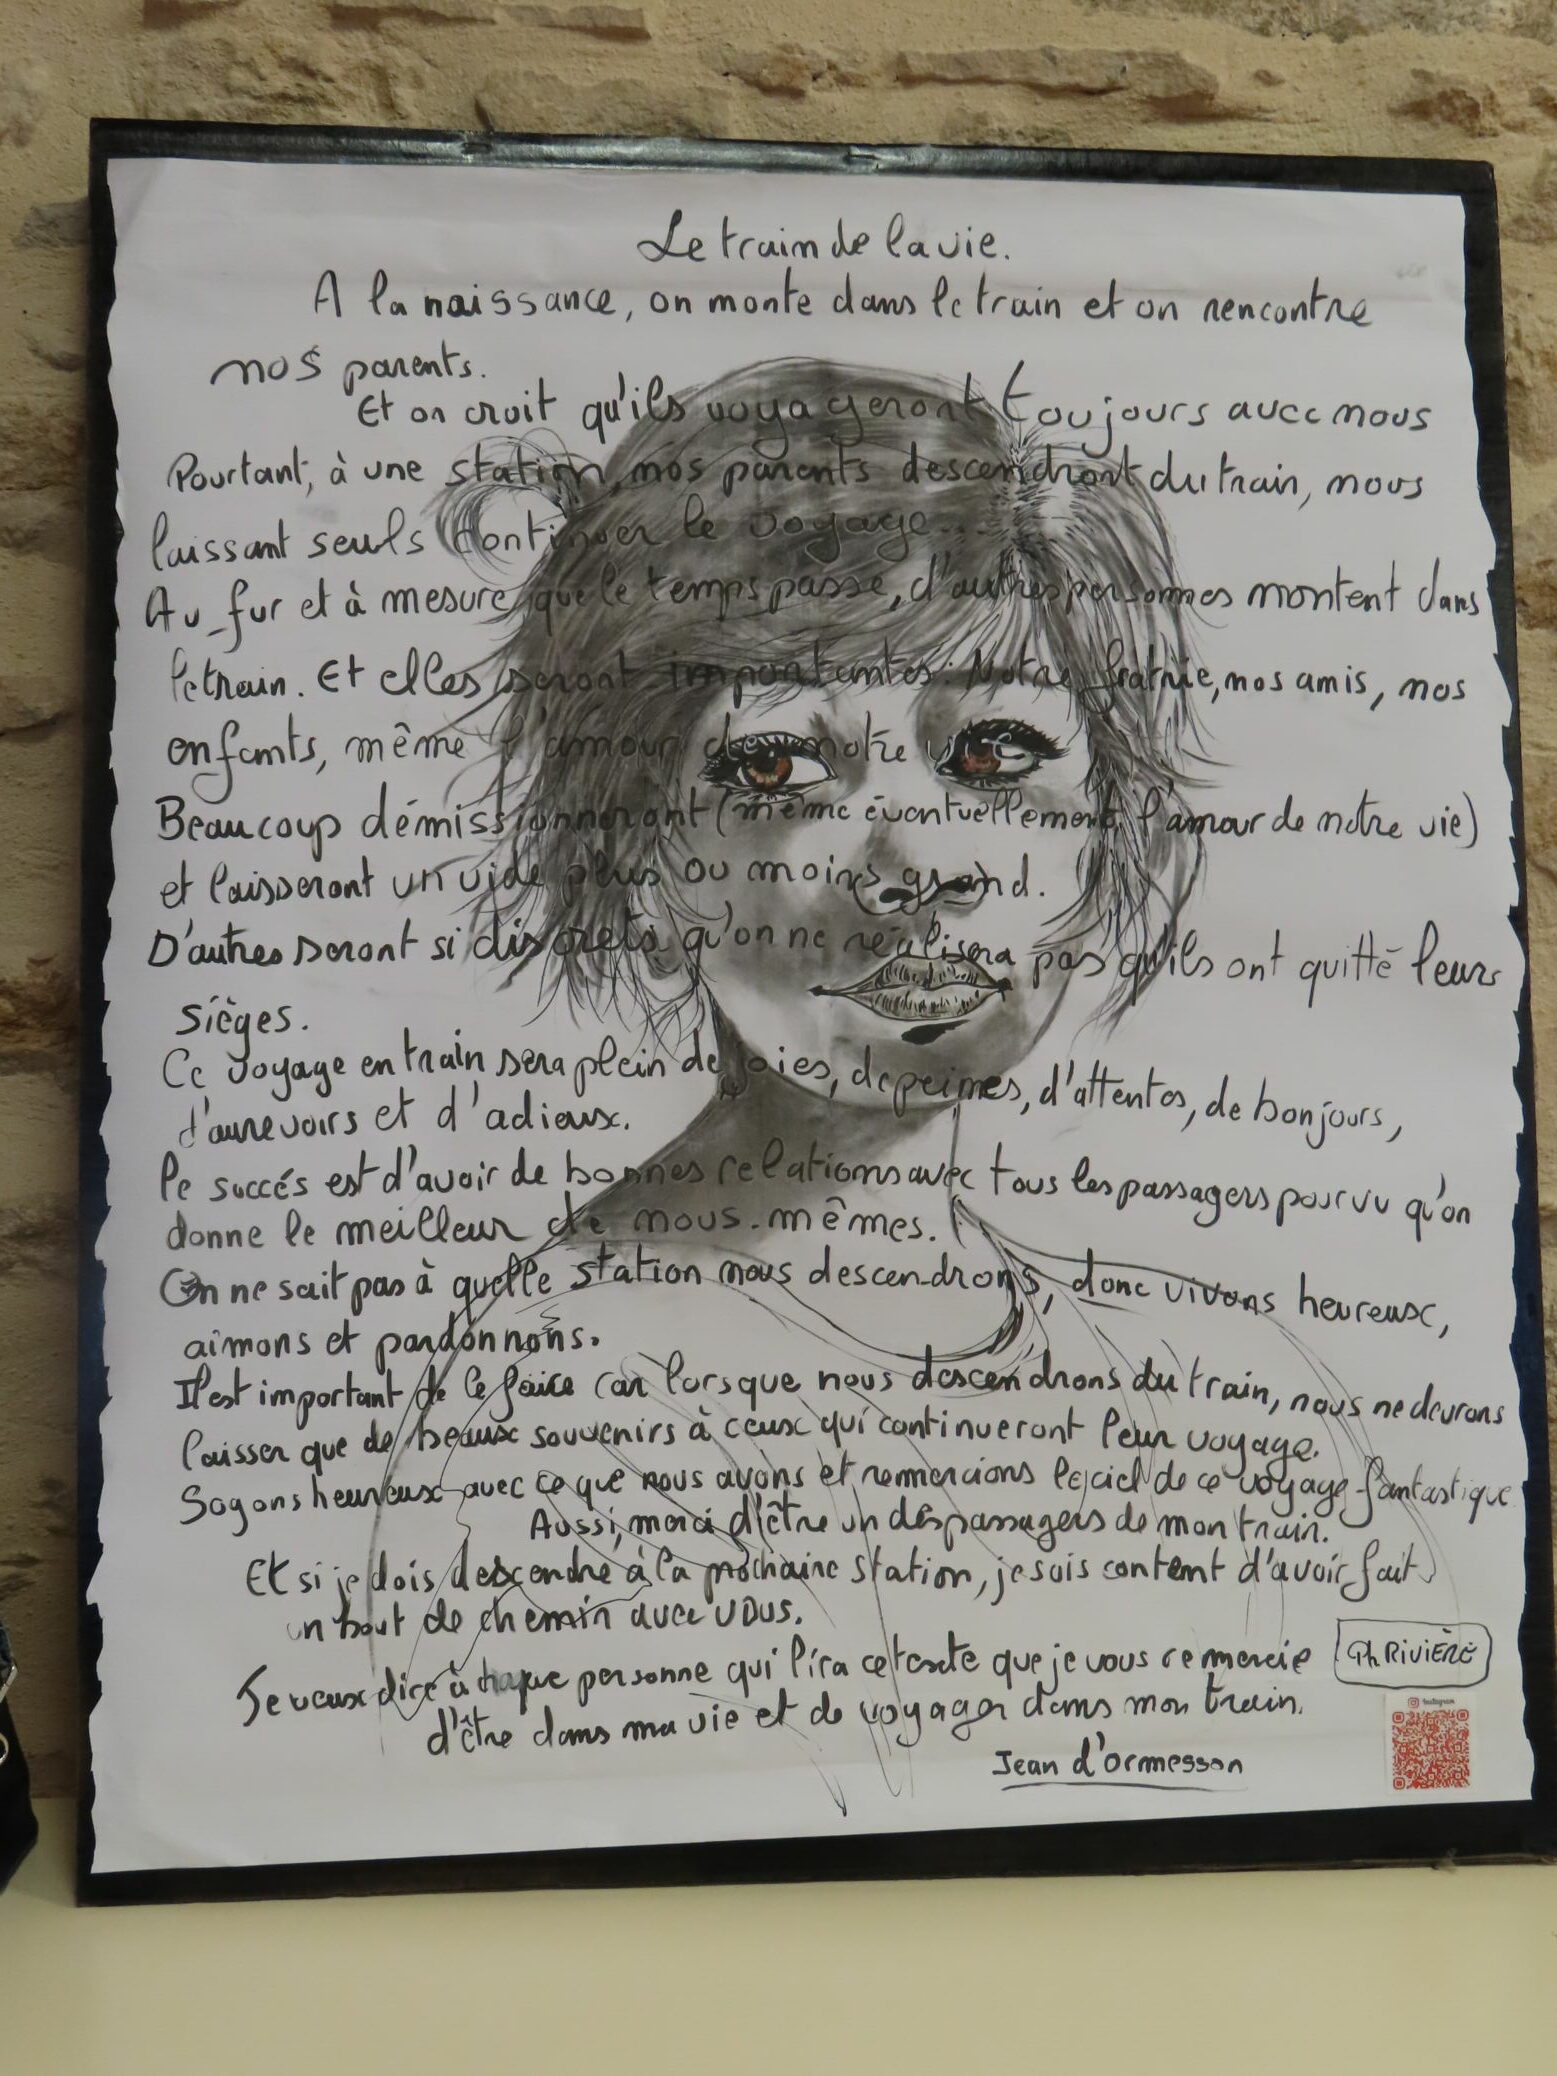 Le train de la vie.
A la naissance, on monte dans le train et on rencontre
nos parents.
Et on croit qu'ils voyageront toujours avec nous
Pourtant, à une station, nos parents descendront du train, nous
laissant seuls continuer le voyage...
Au fur et à mesure que le temps passe, d'autres personnes montent dans
le train. Et elles seront importantes. Notre fratrie, nos amis, nos
enfants, même l'amour de notre
Beaucoup démissionneront (même éventuellement l'amour de notre vie)
et laisseront un vide plus ou moins grand.
D'autres seront si discrets qu'on ne réalisera pas qu'ils ont quitté leurs
sièges.
Ce voyage en train sera plein de joies, de peines, d'attentes, de bonjours,
d'aurevoirs et d'adieux.
Le succés est d'avoir de bonnes relations avec tous les passagers pourvu qu'on
donne le meilleur de nous-mêmes.
On ne sait pas à quelle station nous descendrons, donc vivons heureux,
aimons et pardonnons.
Il est important de le faire car lorsque nous descendrons du train, nous ne devrons
laisser que de beaux souvenirs à ceux qui continueront leur voyage.
Soyons heureux avec ce que nous avons et remercions le ciel de ce voyage fantastique
Aussi, merci d'être un des passagers de mon train.
Et si je dois descendre à la prochaine station, je suis content d'avoir fait
un bout de chemin avec vous.
Je veux dire à chaque personne qui lira ce texte que je vous remercie
d'être dans ma vie et de voyager dans mon train.
Jean d'Ormesson
Ph RIVIÈRE
Instagram